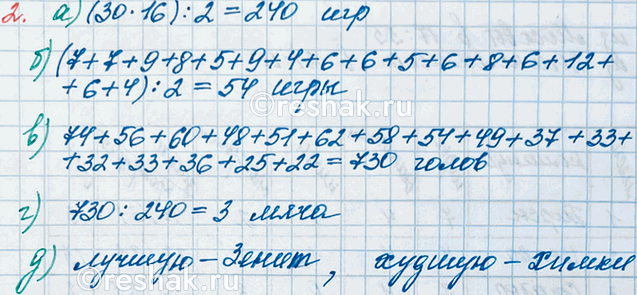 2. а) (30·16):2=240 игр
б) (7+7+9+8+5+9+4+6+6+5+6+8+6+12+
+6+4):2=54 игры
в) 74+56+60+48+51+62+58+54+49+37+33+
+32+33+36+25+22=730 голов
г) 730:240=3 мяча
д) лучшую – Зенит, худшую – Химки
©reshak.ru